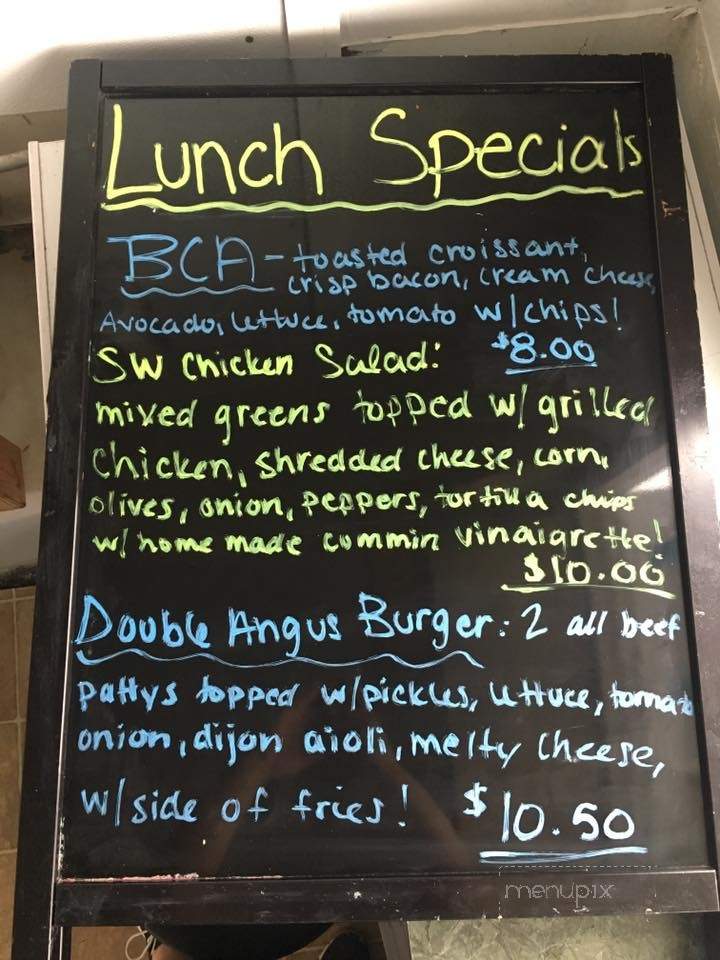 Lunch Specials
BCA - toasted croissant,
crisp bacon, cream cheese,
Avocado, lettuce, tomato w/chips!
$8.00
SW Chicken Salad:
mixed greens topped w/ grilled
chicken, shredded cheese, corn,
olives, onion, peppers, tortilla chips
w/ home made cummin vinaigrette!
$10.00
Double Angus Burger: 2 all beef
pattys topped w/pickles, lettuce, tomato
onion, dijon aioli, melty cheese,
w/side of fries! $10.50
menupix